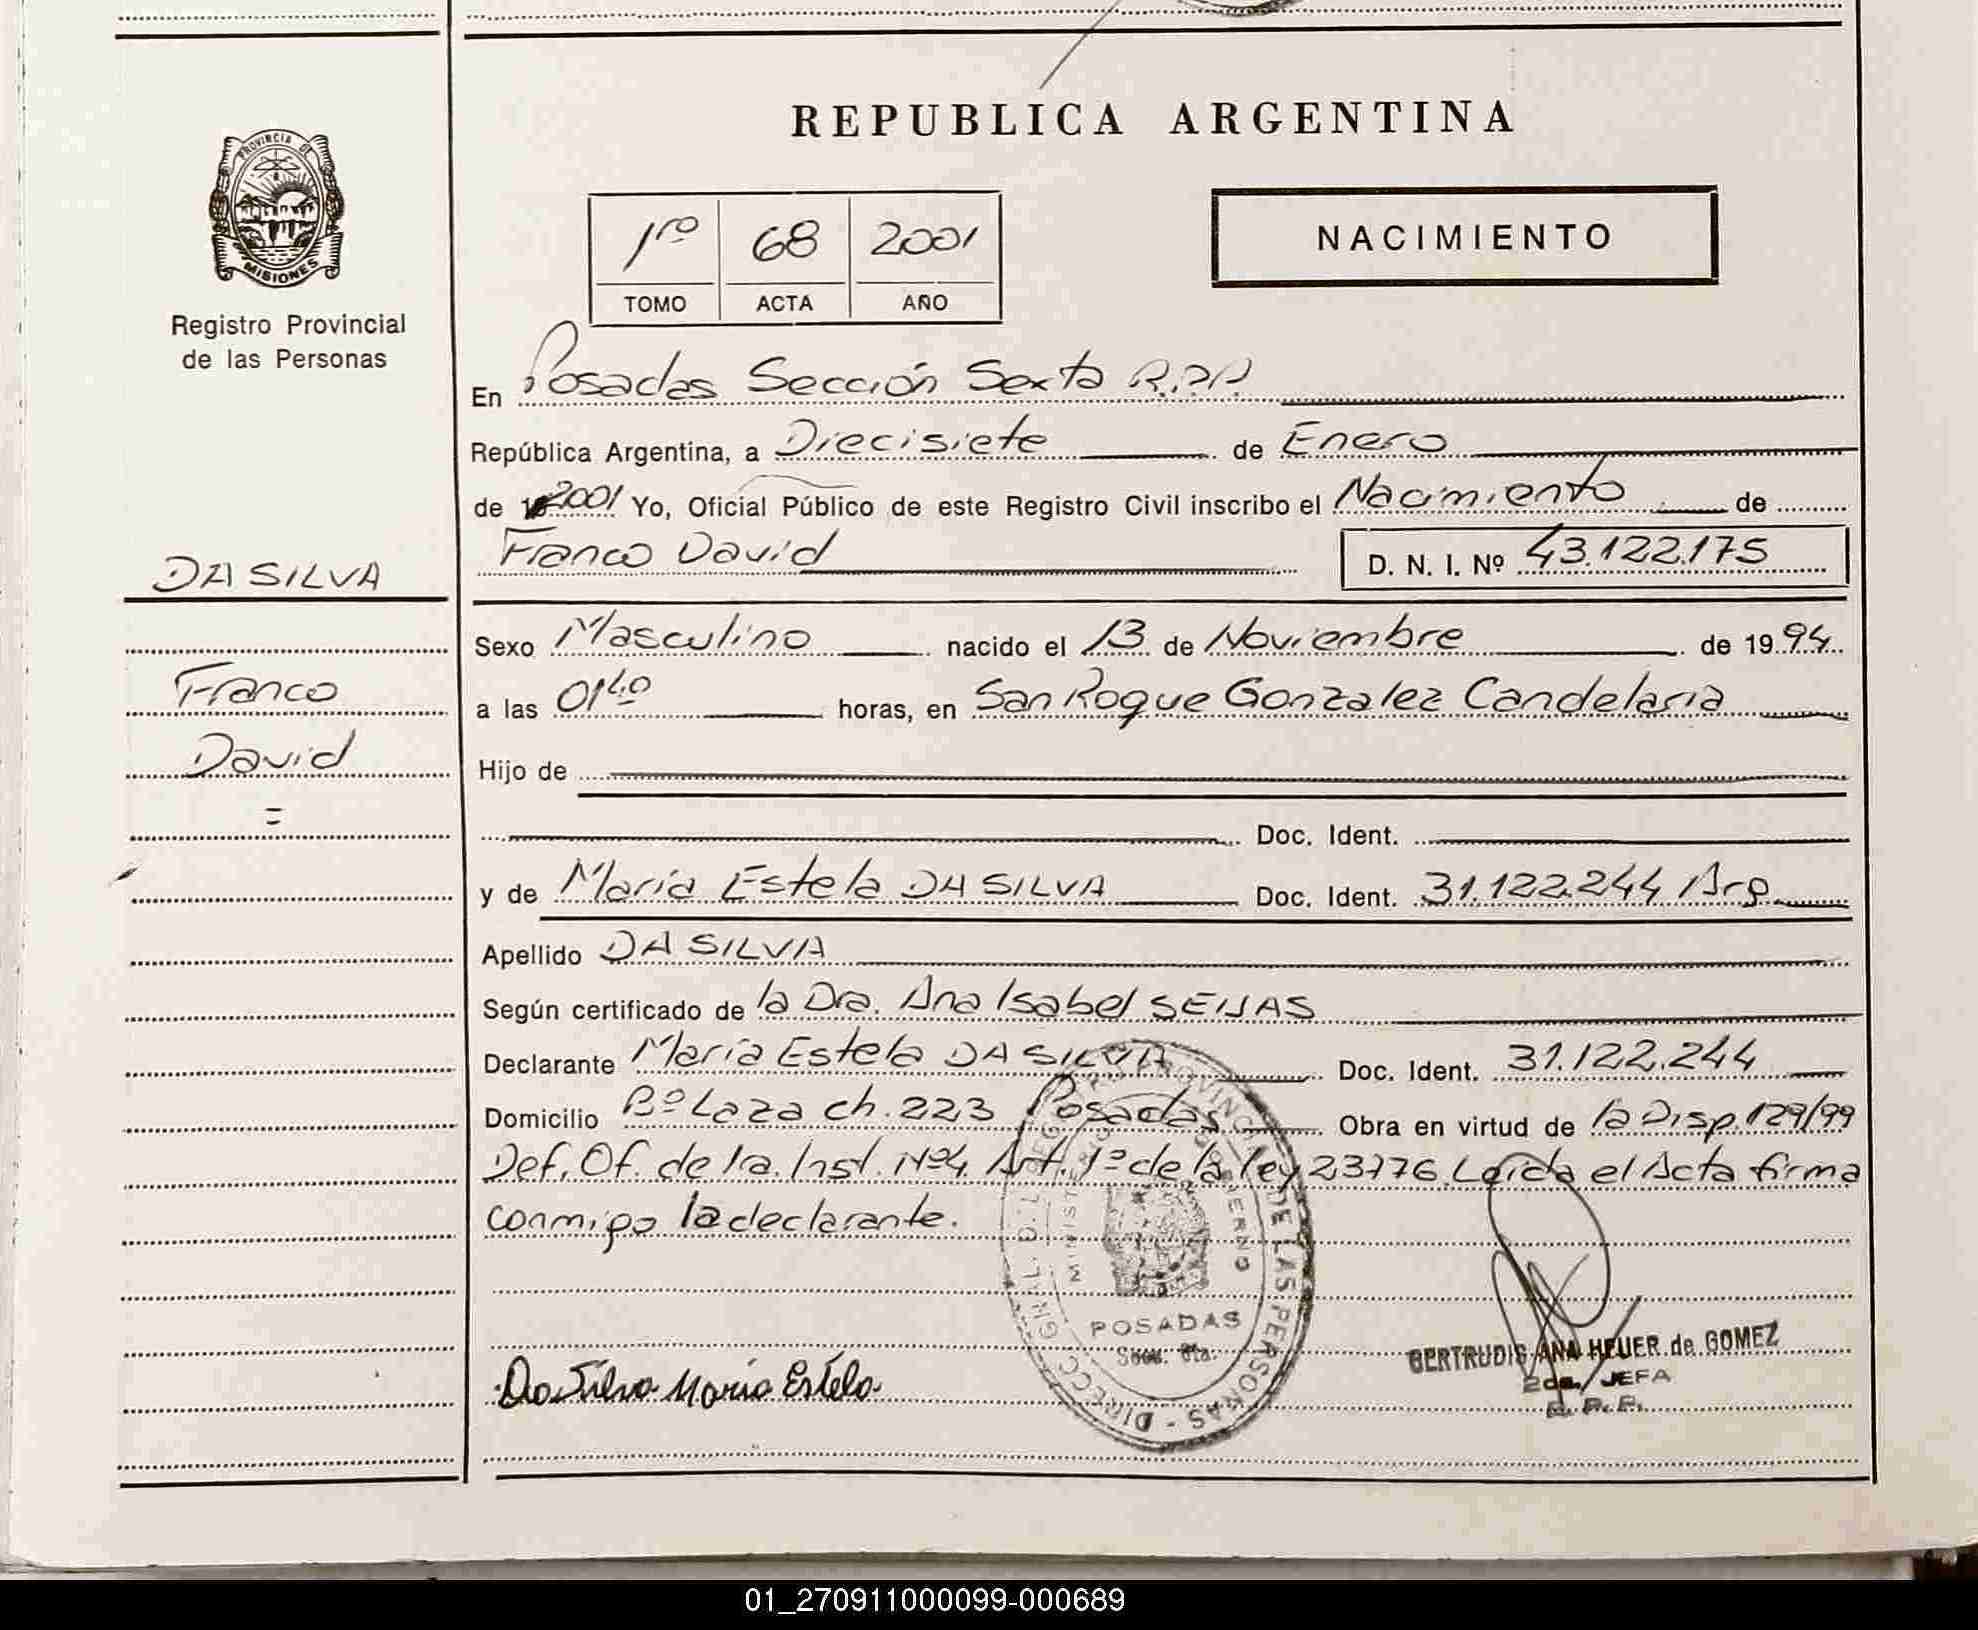 REPUBLICA ARGENTINA
PROVINCIA DE
MISIONES
Registro Provincial
de las Personas
1ro 68 2001
TOMO ACTA AÑO
NACIMIENTO
En Posadas Sección Sexta R.P.P.
República Argentina, a Diecisiete de Enero
de 2001 Yo, Oficial Público de este Registro Civil inscribo el Nacimiento de
Franco David D. N. I. Nº 43.122.175
DA SILVA
Sexo Masculino nacido el 13 de Noviembre de 1994
Franco
a las 01 40 horas, en San Roque Gonzalez Candelaria
David
Hijo de
=
Doc. Ident.
y de María Estela DA SILVA Doc. Ident. 31.122.244 Arg
Apellido DA SILVA
Según certificado de la Dra. Ana Isabel SEIJAS
Declarante María Estela DA SILVA Doc. Ident. 31.122.244
Domicilio Bº Laza ch. 223 Posadas Obra en virtud de la Disp. 129/99
Def. Of. de 1ra. Inst. Nº4. Art. 1º de la ley 23776. Leída el Acta firma
conmigo la declarante.
POSADAS
Secc. 6ta.
DE LAS PERSONAS - DIRECC. GRAL. D.L.
GERTRUDIS ANA HEUER de GOMEZ
2da. JEFA
R. P. P.
Da Silva María Estela
01_270911000099-000689